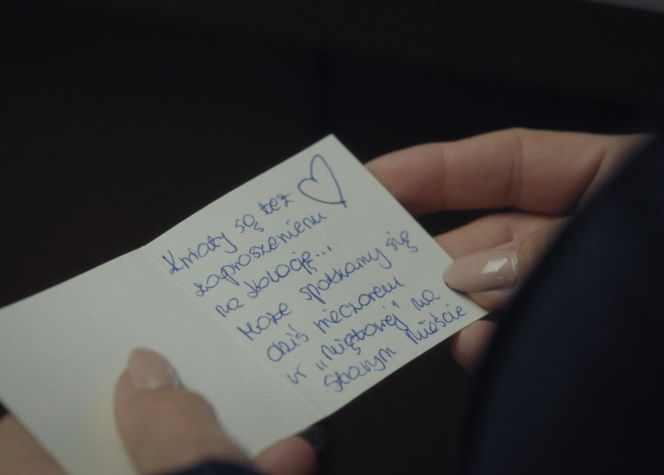 Kwiaty są też
zaproszeniem
na kolację...
Może spotkamy się
dziś wieczorem
w „Miętowej" na
Starym Mieście